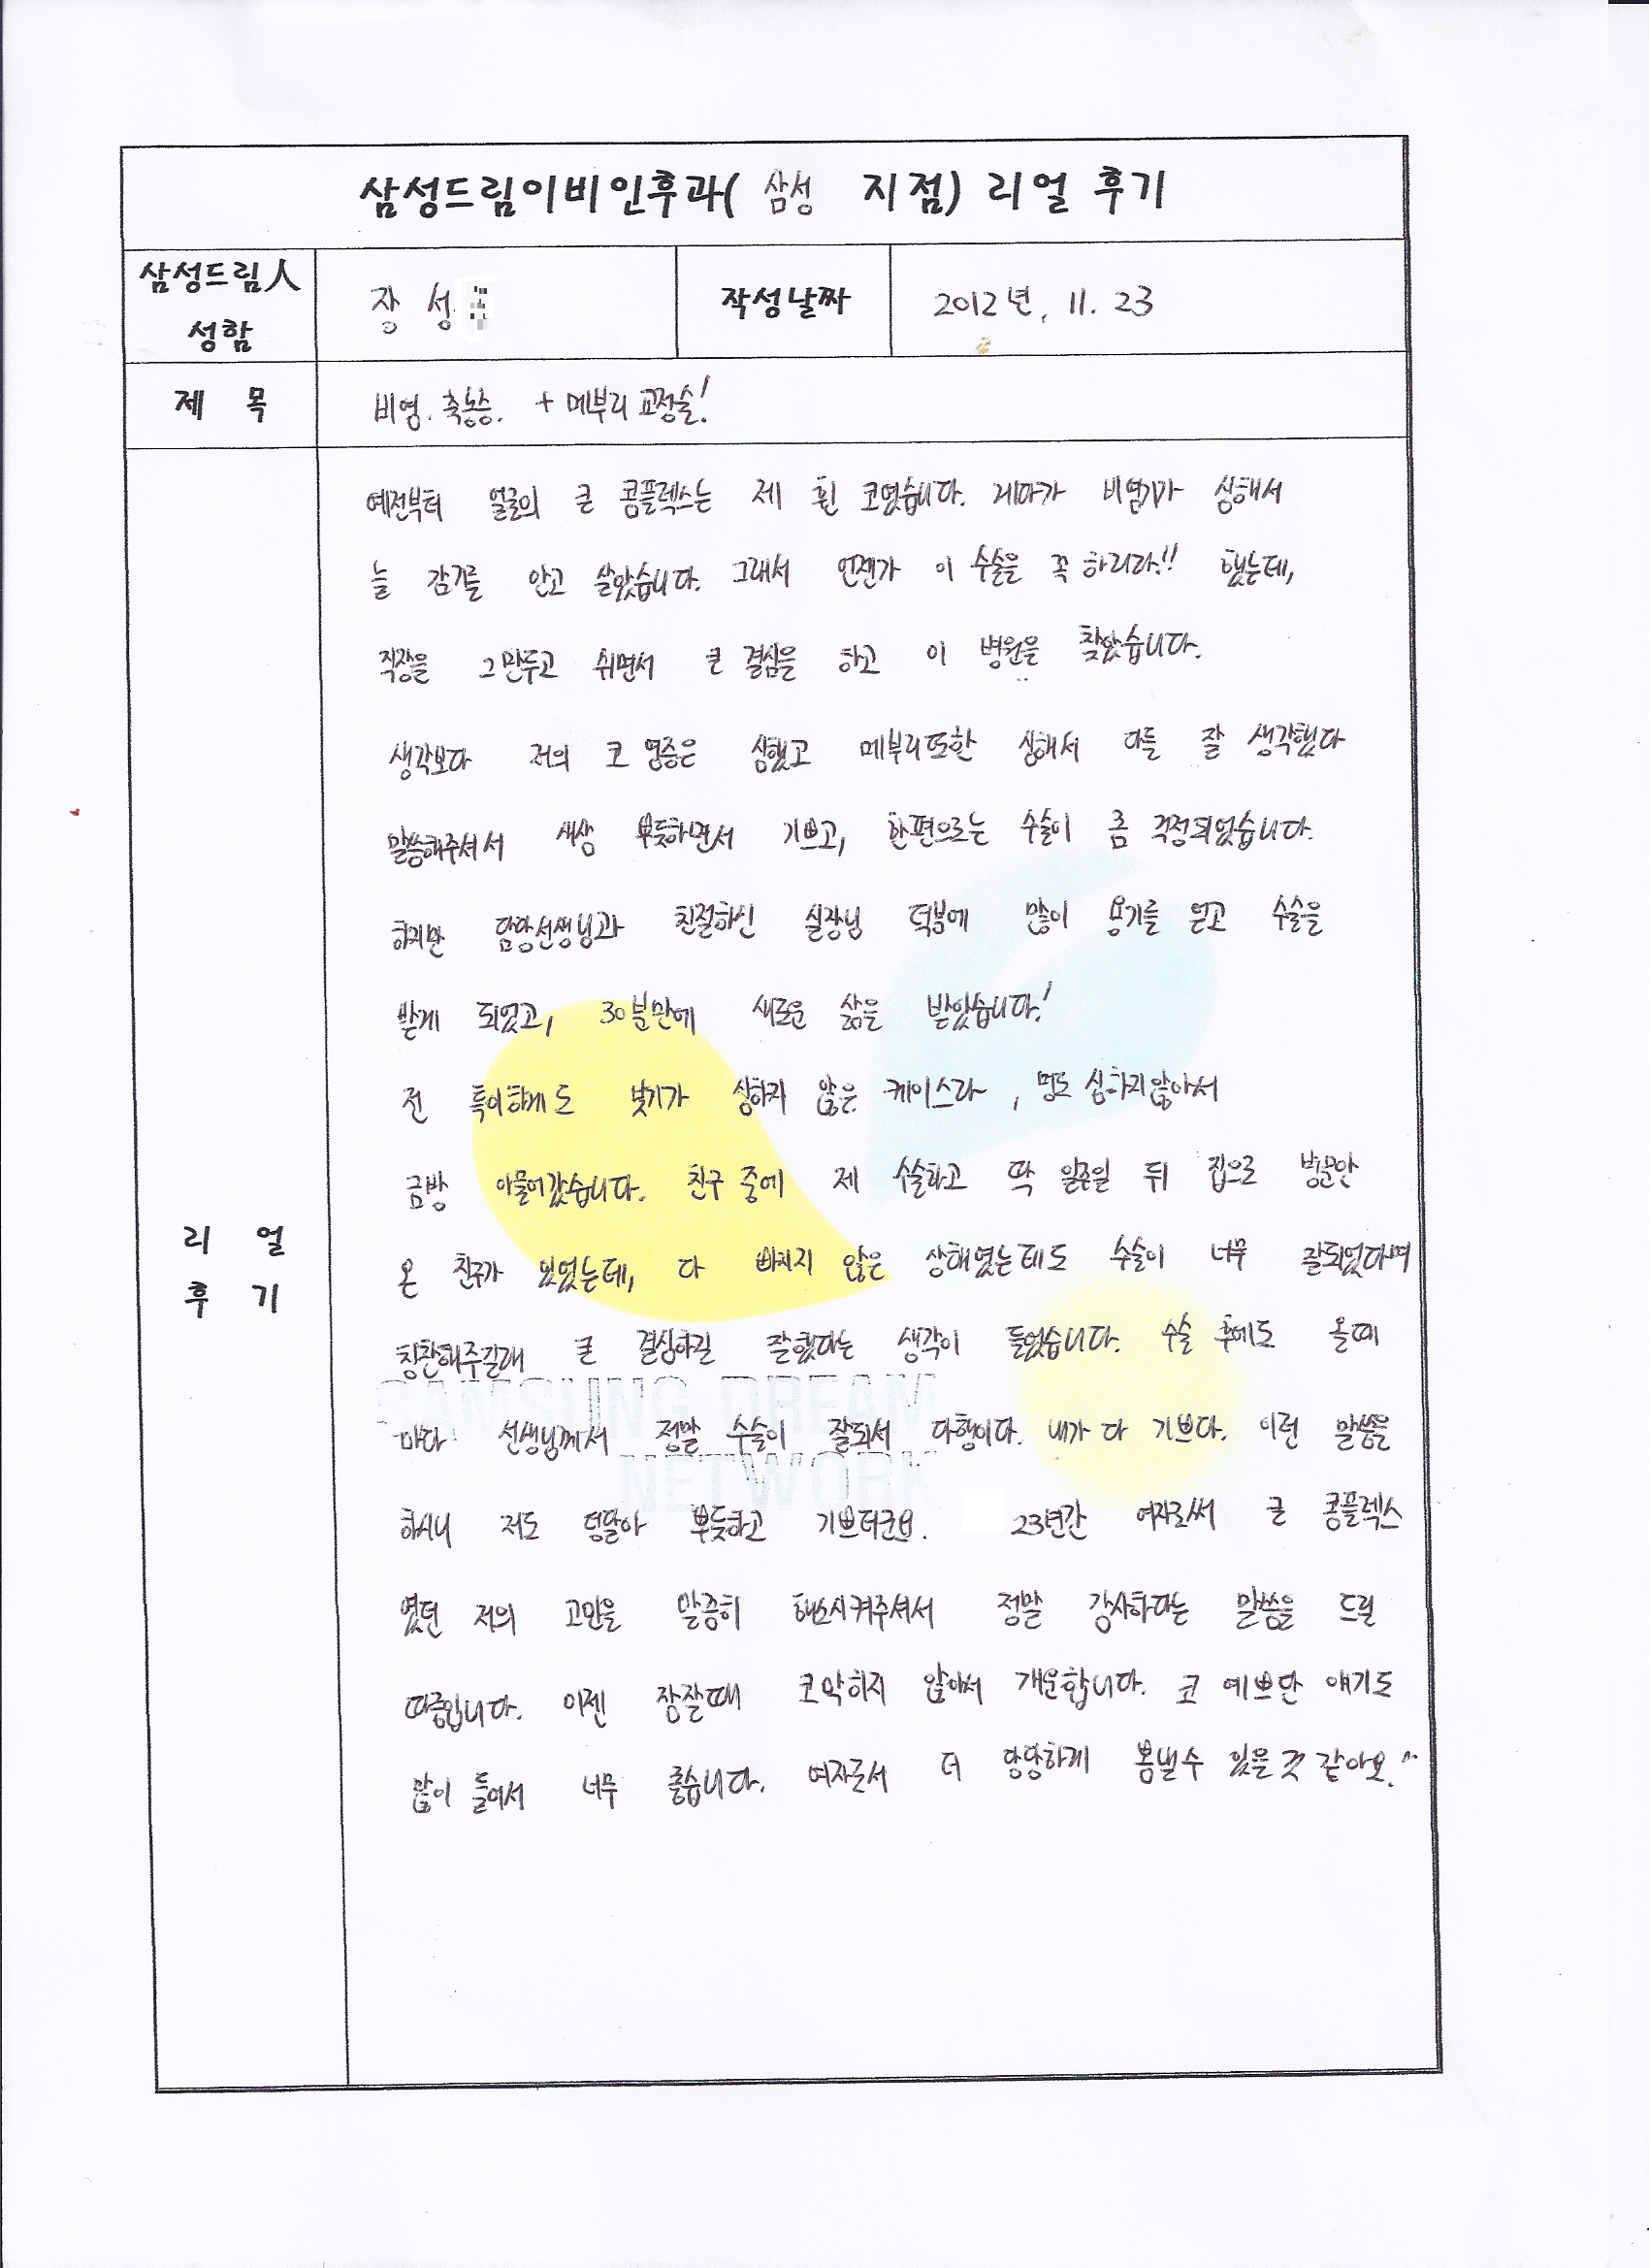 삼성드림이비인후과( 삼성 지점) 리얼 후기
삼성드림人
성함
장 성
작성날짜
2012년. 11. 23
제 목
비염. 축농증. + 메부리 교정술!
리 얼
후 기
예전부터 얼굴의 큰 콤플렉스는 제 휜 코였습니다. 게다가 비염기가 심해서
늘 감기를 안고 살았습니다. 그래서 언젠가 이 수술을 꼭 하리라!! 했는데,
직장을 그만두고 쉬면서 큰 결심을 하고 이 병원을 찾았습니다.
생각보다 저의 코 염증은 심했고 메부리또한 심해서 다들 잘 생각했다
말씀해주셔서 새삼 뿌듯하면서 기쁘고, 한편으로는 수술이 좀 걱정되었습니다.
하지만 담당선생님과 친절하신 실장님 덕분에 많이 용기를 얻고 수술을
받게 되었고, 30분만에 새로운 삶을 받았습니다!
전 특이하게도 붓기가 심하지 않은 케이스라, 멍도 심하지않아서
금방 아물어갔습니다. 친구 중에 제 수술하고 딱 일주일 뒤 집으로 병문안
온 친구가 있었는데, 다 빠지지 않은 상태였는데도 수술이 너무 잘되었다며
칭찬해주길래 큰 결심하길 잘했다는 생각이 들었습니다. 수술 후에도 올때
마다 선생님께서 정말 수술이 잘되서 다행이다. 내가 다 기쁘다. 이런 말씀을
하시니 저도 덩달아 뿌듯하고 기쁘더군요. 23년간 여자로써 큰 콤플렉스
였던 저의 고민을 말끔히 해소시켜주셔서 정말 감사하다는 말씀을 드릴
따름입니다. 이젠 잠잘때 코막히지 않아서 개운합니다. 코 예쁘단 얘기도
많이 들어서 너무 좋습니다. 여자로서 더 당당하게 봄낼수 있을것 같아요.^^
SAMSUNG DREAM
NETWORK